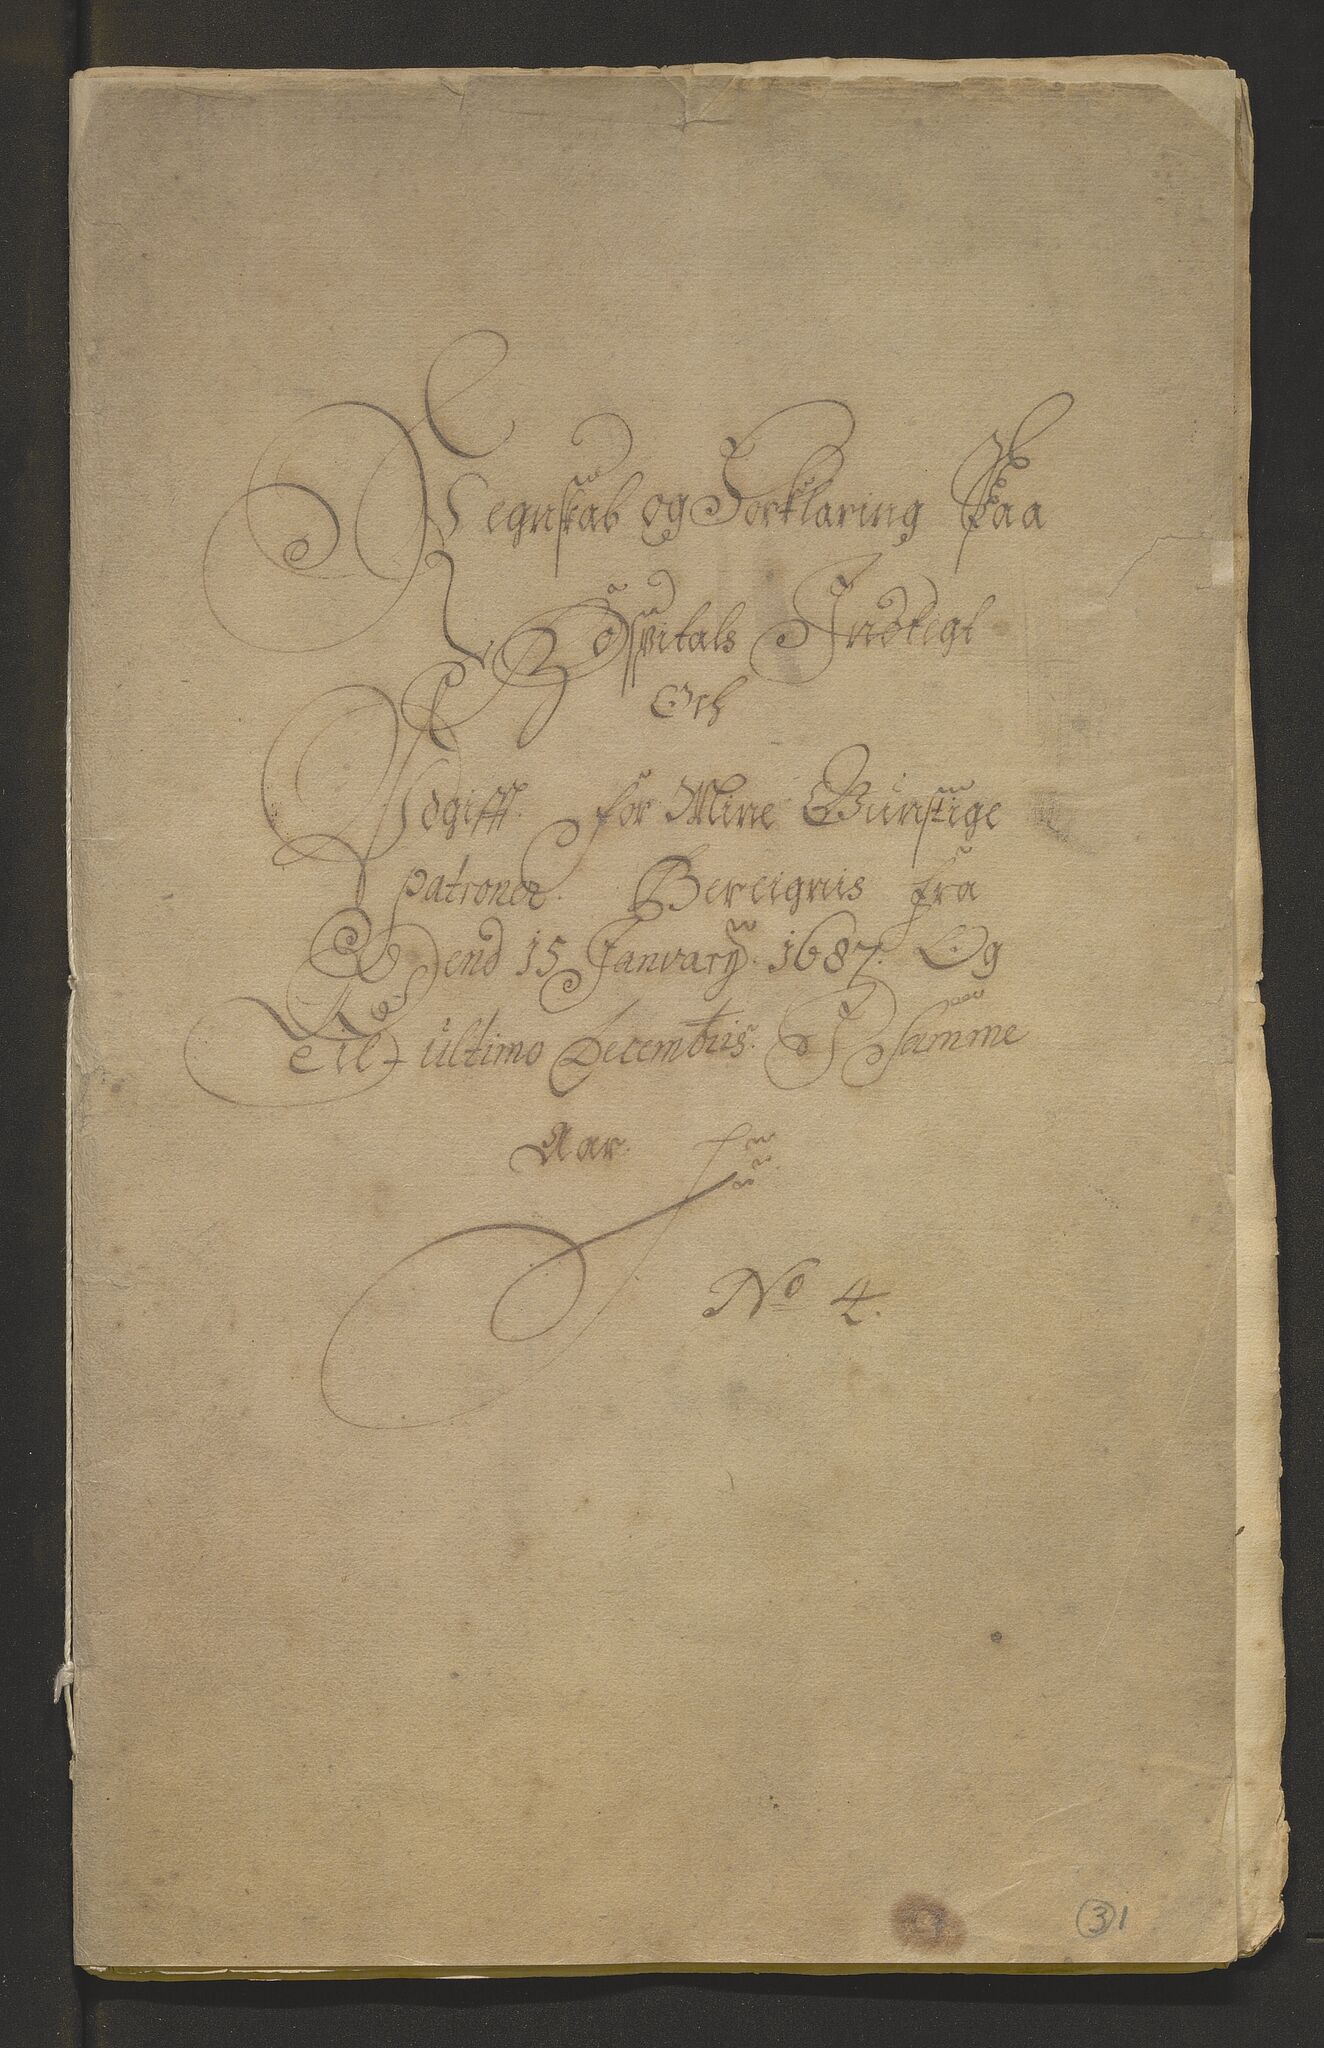 Regnskab og Forklaring Paa
Hospitals Indtegt
Och
Udgifft. for Mine Gunstige
Patroner. Bereignis fra
Dend 15 January. 1687. Og
til ultimo Decembris. I samme
Aar.
No 4.
31